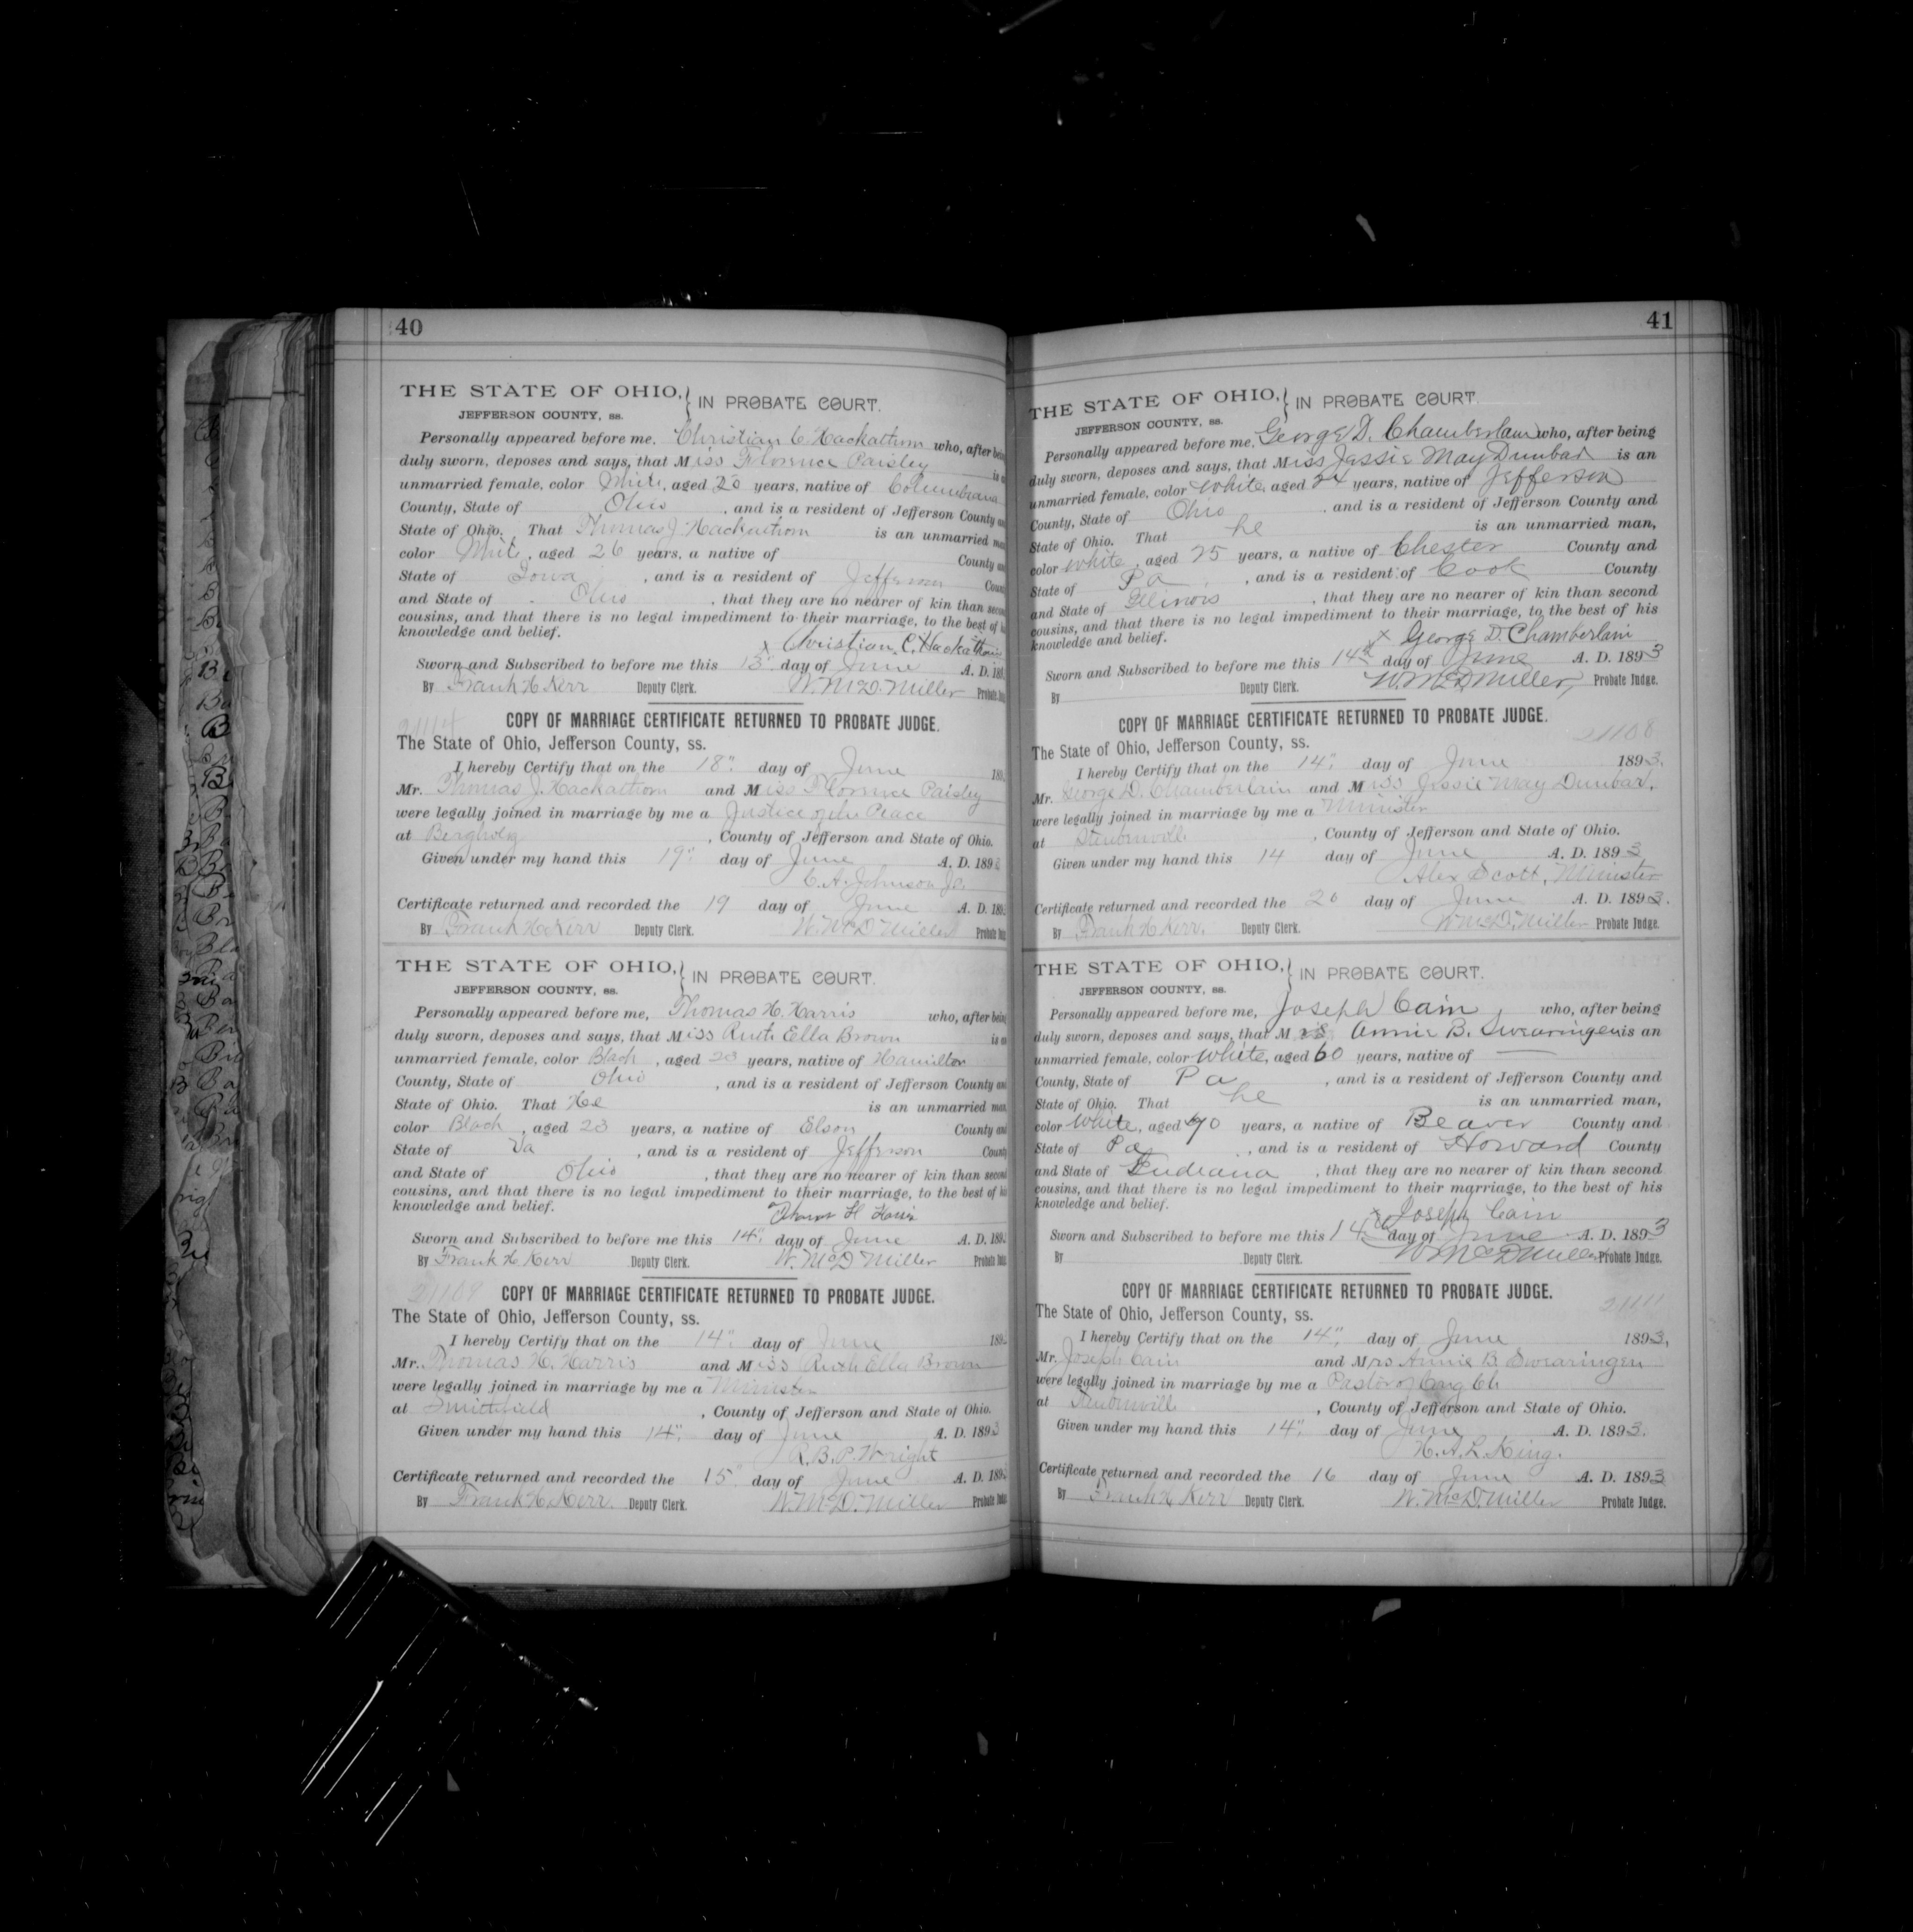 40
THE STATE OF OHIO, } IN PROBATE COURT.
JEFFERSON COUNTY, ss.
Personally appeared before me, Christian C Hackathorn who, after being
duly sworn, deposes and says, that Miss Florence Paisley is a
unmarried female, color White, aged 20 years, native of Columbiana
County, State of Ohio, and is a resident of Jefferson County an
State of Ohio. That Thomas J. Hackathorn is an unmarried ma
color White, aged 26 years, a native of County an
State of Iowa, and is a resident of Jefferson Coun
and State of Ohio, that they are no nearer of kin than secon
cousins, and that there is no legal impediment to their marriage, to the best of hi
knowledge and belief.
x Christian C. Hackathorn
Sworn and Subscribed to before me this 15" day of June A. D. 189
By Frank H Kerr Deputy Clerk. W. McD. Miller Probate Jud
21114
COPY OF MARRIAGE CERTIFICATE RETURNED TO PROBATE JUDGE.
The State of Ohio, Jefferson County, ss.
I hereby Certify that on the 18" day of June 189
Mr. Thomas J. Hackathorn and Miss Florence Paisley
were legally joined in marriage by me a Justice of the Peace
at Bergholz, County of Jefferson and State of Ohio.
Given under my hand this 19" day of June A. D. 1893
C. A. Johnson
Certificate returned and recorded the 19 day of June A. D. 189
By Frank H Kerr Deputy Clerk. W. McD Miller Probate Jud
THE STATE OF OHIO, } IN PROBATE COURT.
JEFFERSON COUNTY, ss.
Personally appeared before me, Thomas H. Harris who, after being
duly sworn, deposes and says, that Miss Ruth Ella Brown is an
unmarried female, color Black, aged 23 years, native of Hamilton
County, State of Ohio, and is a resident of Jefferson County and
State of Ohio. That He is an unmarried man
color Black, aged 23 years, a native of Elson County and
State of Va, and is a resident of Jefferson County
and State of Ohio, that they are no nearer of kin than second
cousins, and that there is no legal impediment to their marriage, to the best of his
knowledge and belief.
Thomas H Harris
Sworn and Subscribed to before me this 14" day of June A. D. 189
By Frank H Kerr Deputy Clerk. W. McD Miller Probate Jud
21109
COPY OF MARRIAGE CERTIFICATE RETURNED TO PROBATE JUDGE.
The State of Ohio, Jefferson County, ss.
I hereby Certify that on the 14" day of June 189
Mr. Thomas H. Harris and Miss Ruth Ella Brown
were legally joined in marriage by me a Minister
at Smithfield, County of Jefferson and State of Ohio.
Given under my hand this 14" day of June A. D. 1893
R. B. P. Wright
Certificate returned and recorded the 15" day of June A. D. 189
By Frank H. Kerr Deputy Clerk. W. McD. Miller Probate Jud
41
THE STATE OF OHIO, } IN PROBATE COURT.
JEFFERSON COUNTY, ss.
Personally appeared before me, George D. Chamberlain who, after being
duly sworn, deposes and says, that Miss Jessie May Dunbar is an
unmarried female, color White, aged 24 years, native of Jefferson
County, State of Ohio, and is a resident of Jefferson County and
State of Ohio. That he is an unmarried man,
color White, aged 25 years, a native of Chester County and
State of Pa, and is a resident of Cook County
and State of Illinois, that they are no nearer of kin than second
cousins, and that there is no legal impediment to their marriage, to the best of his
knowledge and belief.
x George D. Chamberlain
Sworn and Subscribed to before me this 14th day of June A. D. 1893
By Deputy Clerk. W. McD. Miller, Probate Judge.
COPY OF MARRIAGE CERTIFICATE RETURNED TO PROBATE JUDGE.
21108
The State of Ohio, Jefferson County, ss.
I hereby Certify that on the 14" day of June 1893.
Mr. George D. Chamberlain and Miss Jessie May Dunbar,
were legally joined in marriage by me a Minister
at Steubenville, County of Jefferson and State of Ohio.
Given under my hand this 14 day of June A. D. 1893
Alex Scott, Minister
Certificate returned and recorded the 20 day of June A. D. 1893.
By Frank H Kerr. Deputy Clerk. W McD. Miller Probate Judge.
THE STATE OF OHIO, } IN PROBATE COURT.
JEFFERSON COUNTY, ss.
Personally appeared before me, Joseph Cain, who, after being
duly sworn, deposes and says, that Mrs Annie B. Swearingen is an
unmarried female, color White, aged 60 years, native of —
County, State of Pa, and is a resident of Jefferson County and
State of Ohio. That he is an unmarried man,
color White, aged 70 years, a native of Beaver County and
State of Pa, and is a resident of Howard County
and State of Indiana, that they are no nearer of kin than second
cousins, and that there is no legal impediment to their marriage, to the best of his
knowledge and belief.
x Joseph Cain
Sworn and Subscribed to before me this 14th day of June A. D. 1893
By Deputy Clerk. W McD Miller Probate Judge.
COPY OF MARRIAGE CERTIFICATE RETURNED TO PROBATE JUDGE.
21111
The State of Ohio, Jefferson County, ss.
I hereby Certify that on the 14" day of June 1893,
Mr. Joseph Cain and Mrs Annie B Swearingen
were legally joined in marriage by me a Pastor of Cong Ch
at Steubenville, County of Jefferson and State of Ohio.
Given under my hand this 14" day of June A. D. 1893.
H. A. L. King.
Certificate returned and recorded the 16 day of June A. D. 1893
By Frank H Kerr Deputy Clerk. W. McD. Miller Probate Judge.